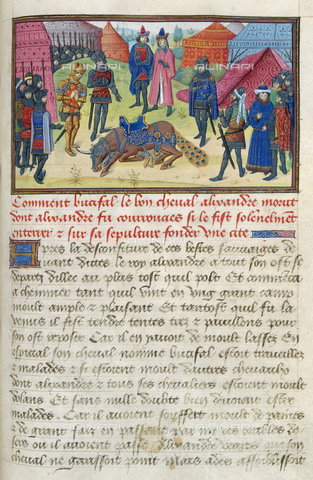 ALINARI
ALINARI
Comment bucifal le bon cheval alixandre morut
dont alixandre fu courouciés si le fist solennelment
enterrer & sur sa sepulture fonder une cite
Apres la desconfiture de ces bestes sauvaiges de
vant dittes le roy alixandre a tout son ost se
party dillec au plus tost quil polt Et commença
a cheminer tant quil vint en ung grant camp
moult ample & plaisant Et tantost quil fu la
venus il fist tendre tentes trez & pavillons pour
son ost reposer Car il en y avoit de moult lassez En
especial son cheval nomme bucifal estoit travaillez
& malades & si estoient moult dautres chevaulz
dont alixandre & tous ses chevaliers estoient moult
dolans Et sans nulle doubte bien devoient estre
malades Car il avoient souffert moult de paines
& de grant faiz en passant par my ces
sers ou il avoient passe Alixandre veant que son
cheval ne garissoit point Mais ades affoiblissoit